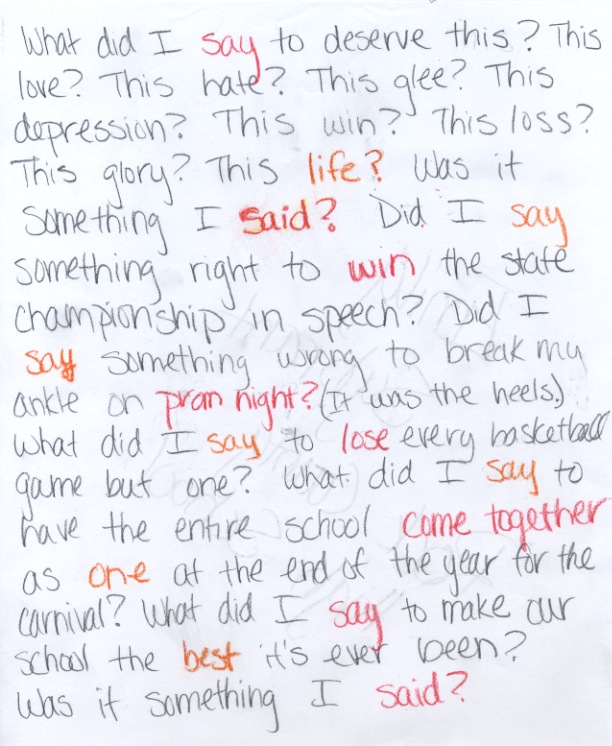 What did I say to deserve this? This
love? This hate? This glee? This
depression? This win? This loss?
This glory? This life? Was it
something I said? Did I say
something right to win the state
championship in speech? Did I
say something wrong to break my
ankle on prom night? (It was the heels.)
What did I say to lose every basketball
game but one? What did I say to
have the entire school come together
as one at the end of the year for the
carnival? What did I say to make our
school the best it's ever been?
Was it something I said?